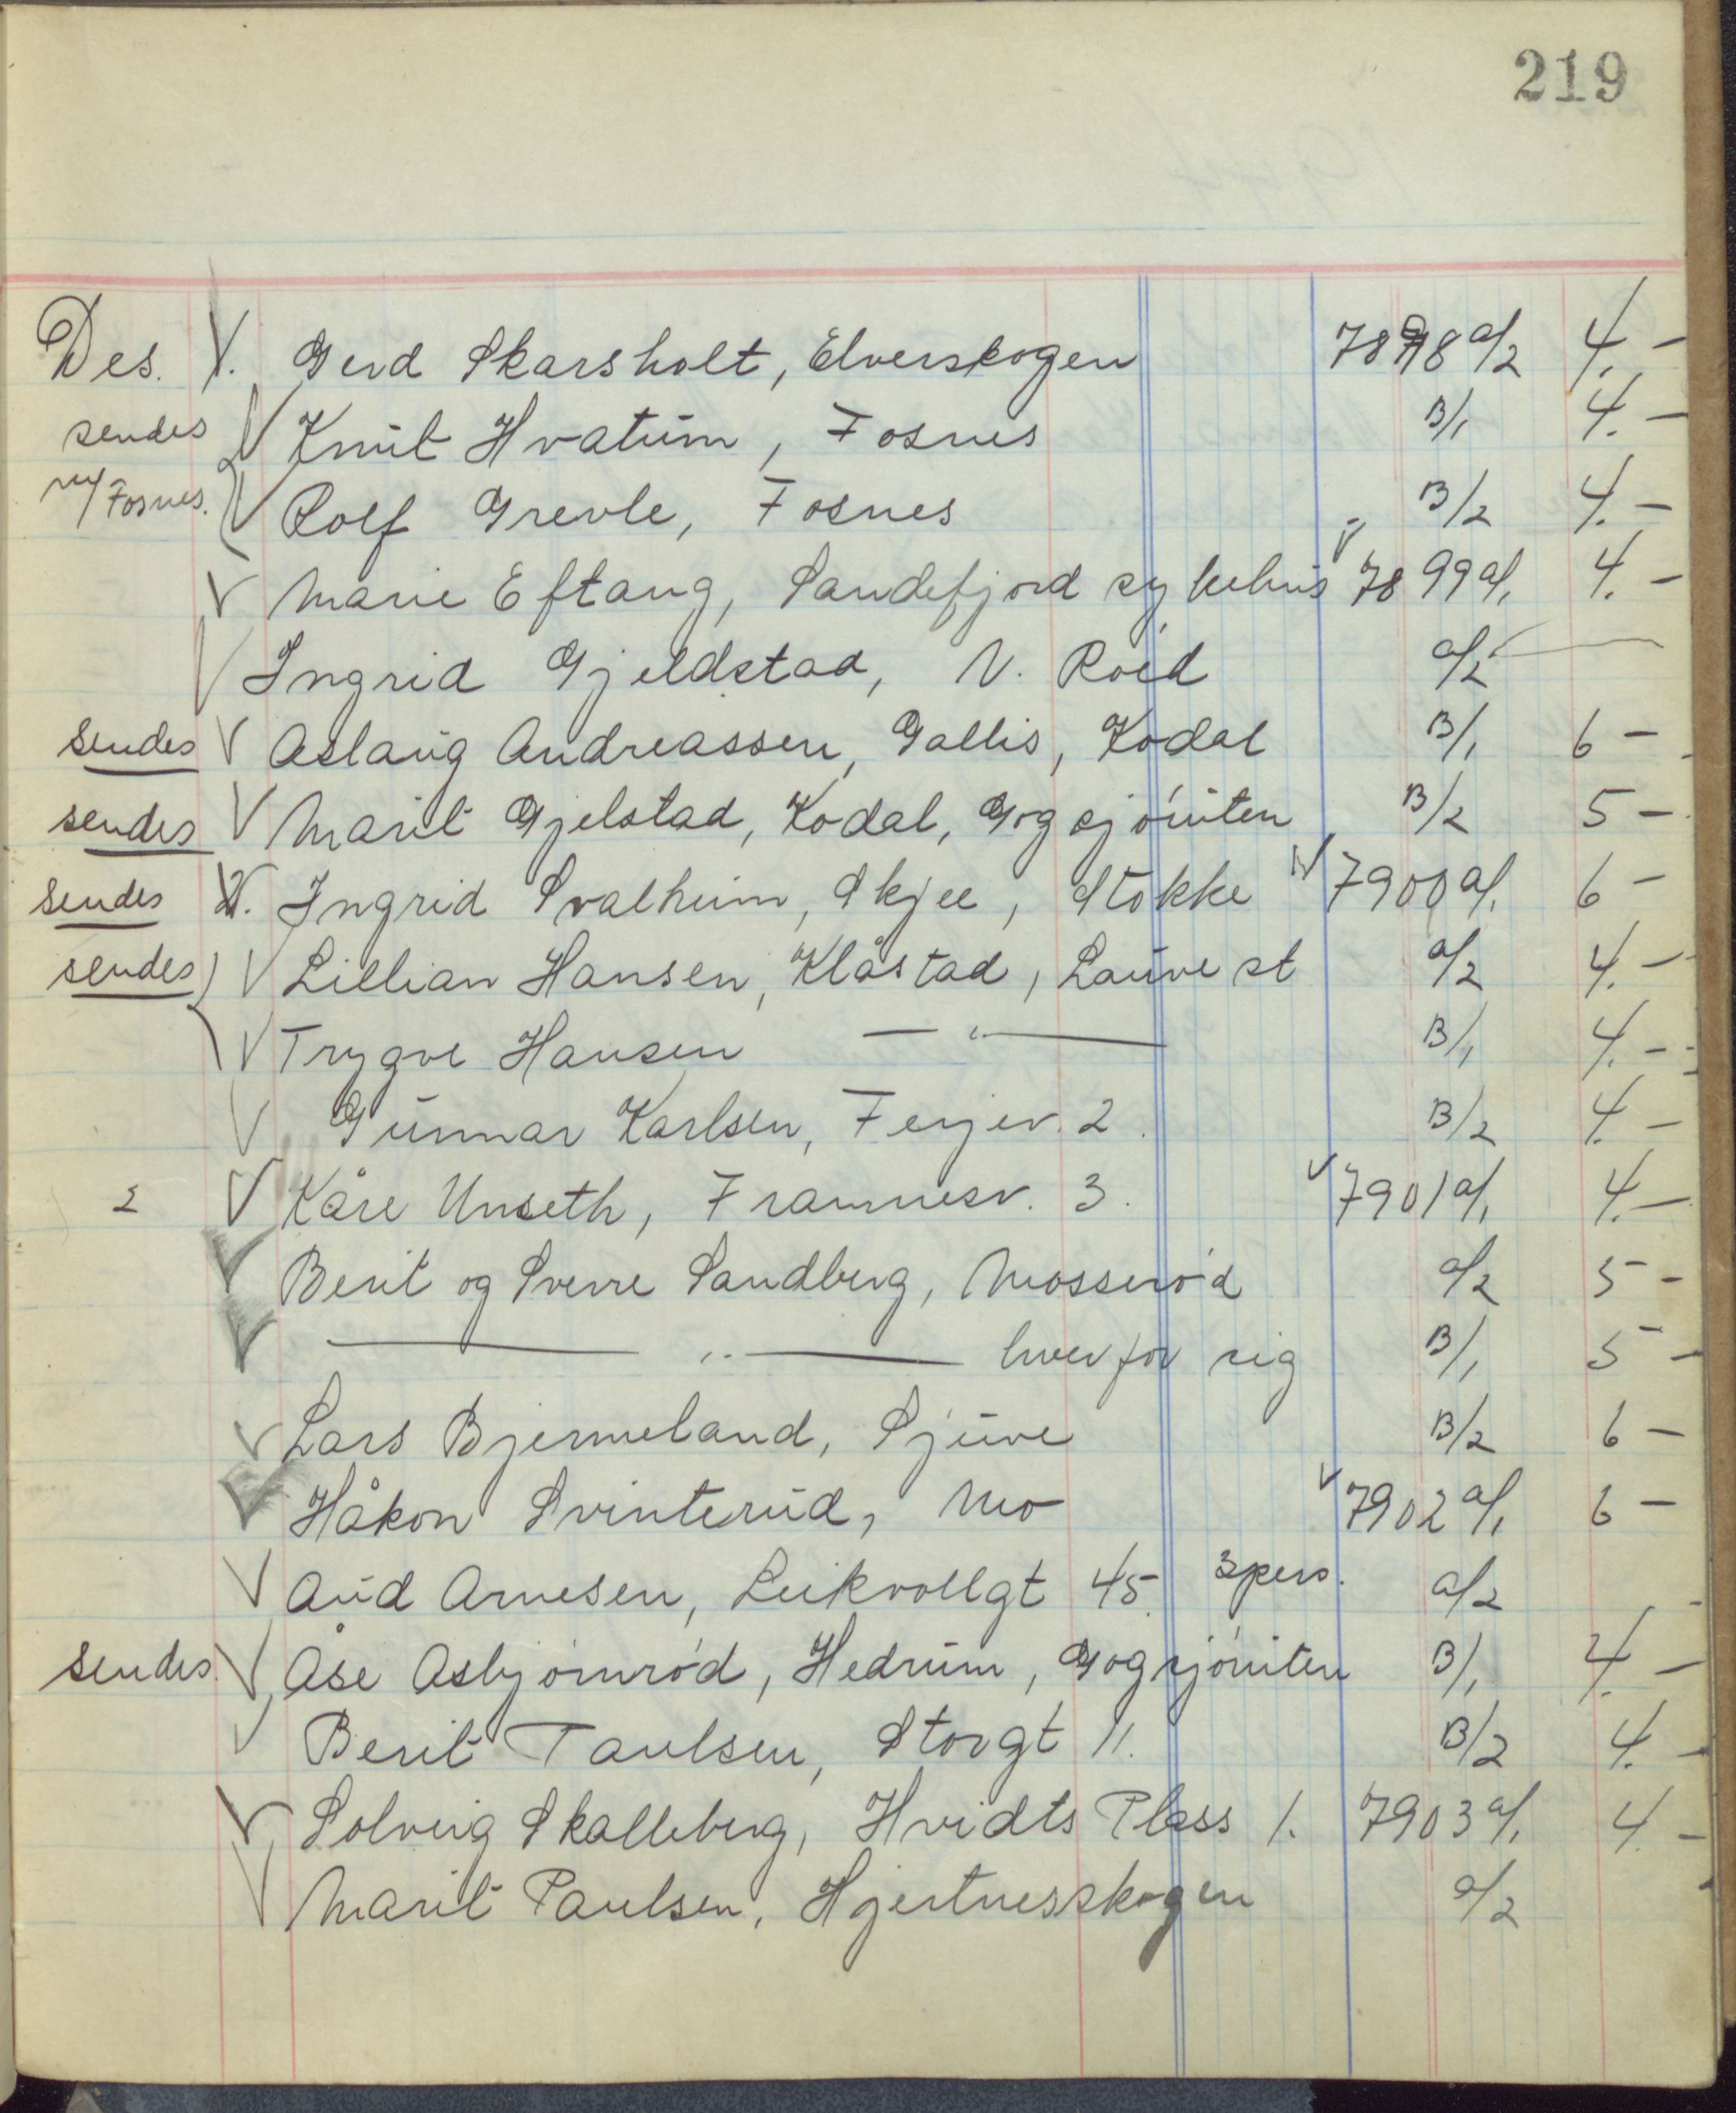 219
Des. 1. Gerd Skarsholt, Elverskogen 7898 a/2 4.-
sendes Knut Hvatum, Fosnes B/1 4.-
m/Fosnes. Rolf Grevle, Fosnes B/2 4.-
Marie Eftang, Sandefjord sykehus 7899 a/1 4.-
Ingrid Gjeldstad, N. Röed a/2 —
sendes Aslaug Andreassen, Gallis, Kodal B/1 6 -
sendes Marit Gjelstad, Kodal, Gogsjöruten B/2 5 -
sendes 2. Ingrid Svalheim, Skjee, Stokke 7900 a/1 6 -
sendes Lillian Hansen, Klåstad, Lauve st a/2 4.-
Trygve Hansen — " — B/1 4.-
Gunnar Karlsen, Ferjev. 2. B/2 4.-
2 Kåre Unseth, Framnesv. 3. 7901 a/1 4.-
Berit og Sverre Sandberg, Mosseröd a/2 5 -
— " — hver for sig B/1 5 -
Lars Bjermeland, Sjuve B/2 6 -
Håkon Svinterud, Mo 7902 a/1 6 -
Aud Arnesen, Leikvollgt 45. 3 pers. a/2
sendes. Åse Asbjörnröd, Hedrum, Gogsjöruten B/1 4.-
Berit Paulsen, Storgt 11. B/2 4.-
Solveig Skalleberg, Hvidts Plass 1. 7903 a/1 4 -
Marit Paulsen, Hjertnesskogen a/2